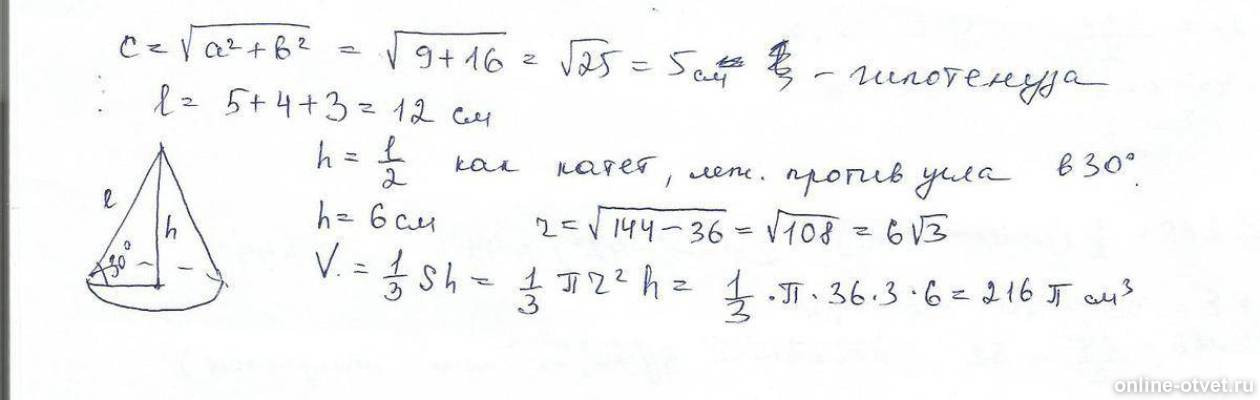 c = √(a² + b²) = √(9+16) = √25 = 5 см – гипотенуза
l = 5+4+3 = 12 см
h = l/2 как катет, леж. против угла в 30°.
h = 6 см r = √(144–36) = √108 = 6√3
V. = 1/3 Sh = 1/3 πr²h = 1/3 · π · 36 · 3 · 6 = 216 π см³
l
h
30°
online-otvet.ru